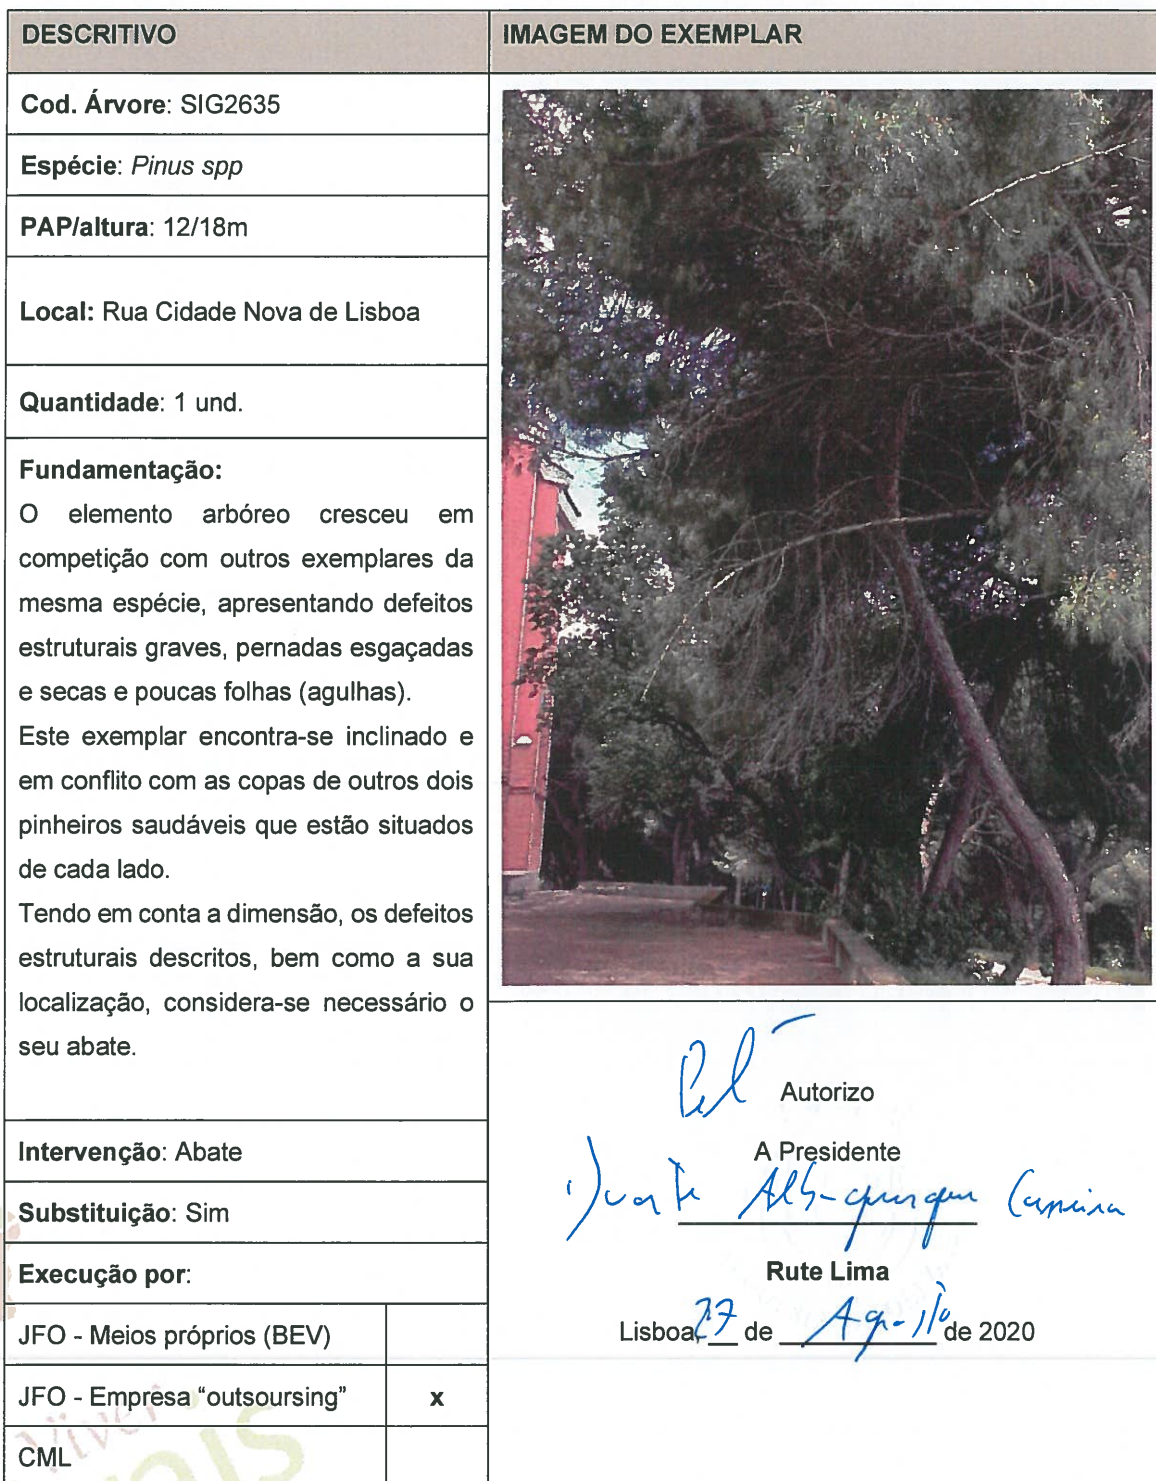 DESCRITIVO
IMAGEM DO EXEMPLAR
Cod. Árvore: SIG2635
Espécie: Pinus spp
PAP/altura: 12/18m
Local: Rua Cidade Nova de Lisboa
Quantidade: 1 und.
Fundamentação:
O elemento arbóreo cresceu em
competição com outros exemplares da
mesma espécie, apresentando defeitos
estruturais graves, pernadas esgaçadas
e secas e poucas folhas (agulhas).
Este exemplar encontra-se inclinado e
em conflito com as copas de outros dois
pinheiros saudáveis que estão situados
de cada lado.
Tendo em conta a dimensão, os defeitos
estruturais descritos, bem como a sua
localização, considera-se necessário o
seu abate.
Intervenção: Abate
Substituição: Sim
Execução por:
JFO - Meios próprios (BEV)
JFO - Empresa “outsoursing” x
CML
Autorizo
A Presidente
Duarte Albuquerque Carreira
Rute Lima
Lisboa, 27 de Agosto de 2020
Viver